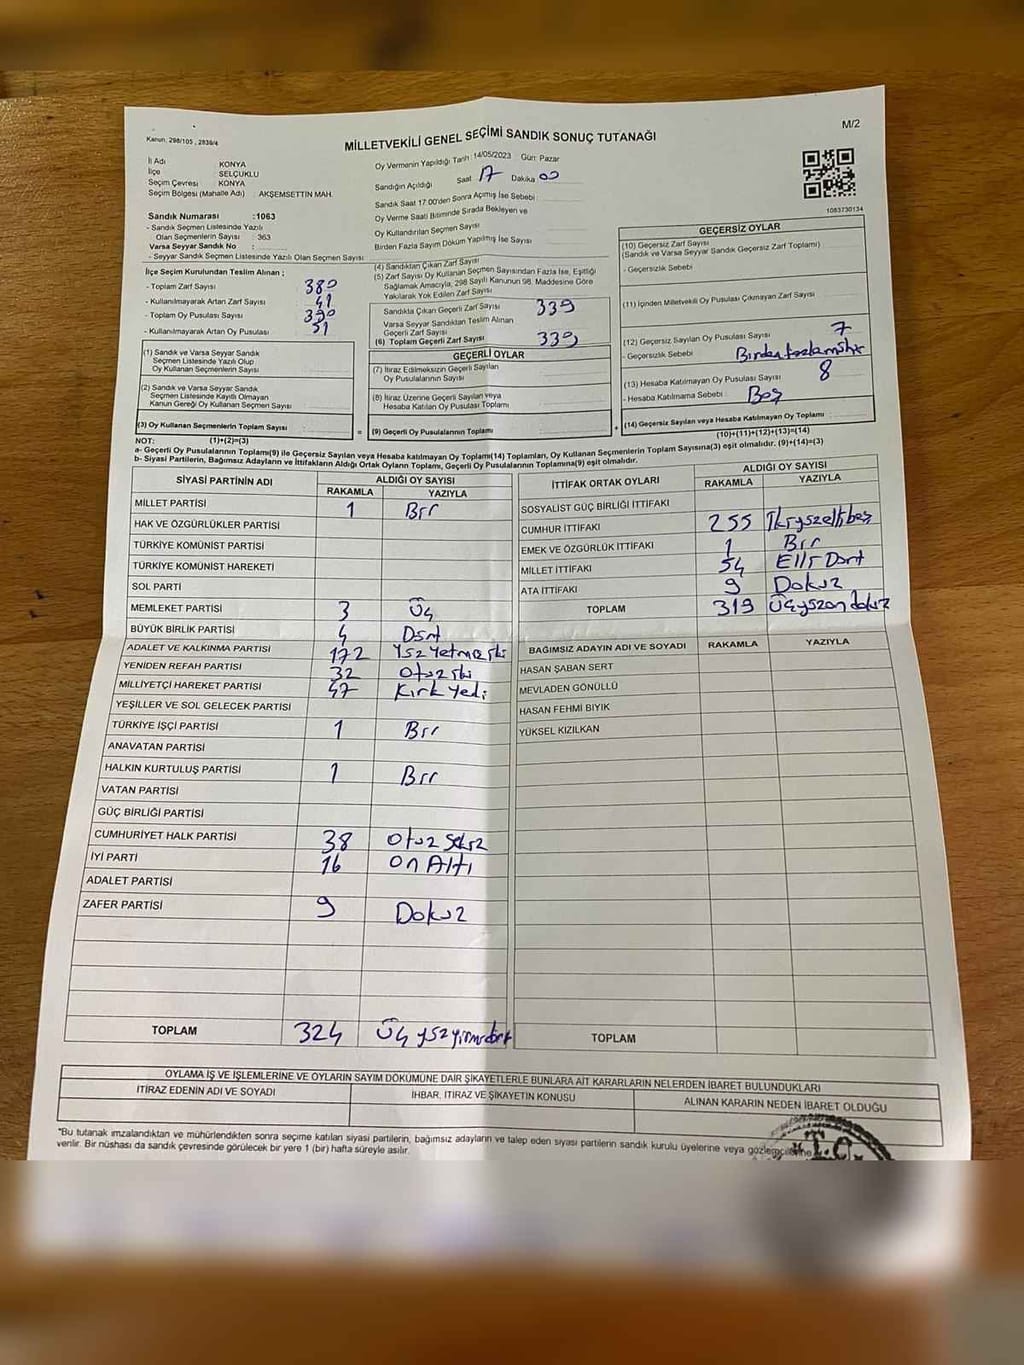 Kanun, 298/105 , 2839/4
MİLLETVEKİLİ GENEL SEÇİMİ SANDIK SONUÇ TUTANAĞI
M/2
İl Adı KONYA
İlçe SELÇUKLU
Seçim Çevresi KONYA
Seçim Bölgesi (Mahalle Adı) : AKŞEMSETTIN MAH.
Sandık Numarası :1063
- Sandık Seçmen Listesinde Yazılı
Olan Seçmenlerin Sayısı : 363
Varsa Seyyar Sandık No :
- Seyyar Sandık Seçmen Listesinde Yazılı Olan Seçmen Sayısı
Oy Vermenin Yapıldığı Tarih :14/05/2023 Gün: Pazar
Sandığın Açıldığı Saat 17 Dakika 00
Sandık Saat 17:00'den Sonra Açımış İse Sebebi :
Oy Verme Saati Bitiminde Sırada Bekleyen ve
Oy Kullandırılan Seçmen Sayısı
Birden Fazla Sayım Döküm Yapılmış İse Sayısı
1083730134
İlçe Seçim Kurulundan Teslim Alınan ;
- Toplam Zarf Sayısı 380
- Kullanılmayarak Artan Zarf Sayısı 41
- Toplam Oy Pusulası Sayısı 390
- Kullanılmayarak Artan Oy Pusulası 51
(1) Sandık ve Varsa Seyyar Sandık
Seçmen Listesinde Yazılı Olup
Oy Kullanan Seçmenlerin Sayısı
(2) Sandık ve Varsa Seyyar Sandık
Seçmen Listesinde Kayıtlı Olmayan
Kanun Gereği Oy Kullanan Seçmen Sayısı
(3) Oy Kullanan Seçmenlerin Toplam Sayısı
(1)+(2)=(3)
(4) Sandıktan Çıkan Zarf Sayısı
(5) Zarf Sayısı Oy Kullanan Seçmen Sayısından Fazla İse, Eşitliği
Sağlamak Amacıyla, 298 Sayılı Kanunun 98. Maddesine Göre
Yakılarak Yok Edilen Zarf Sayısı
Sandıkta Çıkan Geçerli Zarf Sayısı 339
Varsa Seyyar Sandıktan Teslim Alınan
Geçerli Zarf Sayısı
(6) Toplam Geçerli Zarf Sayısı 339
GEÇERLİ OYLAR
(7) İtiraz Edilmeksizin Geçerli Sayılan
Oy Pusulalarının Sayısı
(8) İtiraz Üzerine Geçerli Sayılan veya
Hesaba Katılan Oy Pusulası Toplamı
= (9) Geçerli Oy Pusulalarının Toplamı +
GEÇERSİZ OYLAR
(10) Geçersiz Zarf Sayısı
(Sandık ve Varsa Seyyar Sandık Geçersiz Zarf Toplamı)
- Geçersizlik Sebebi
(11) İçinden Milletvekili Oy Pusulası Çıkmayan Zarf Sayısı
(12) Geçersiz Sayılan Oy Pusulası Sayısı 7
- Geçersizlik Sebebi Birden fazla mühür
(13) Hesaba Katılmayan Oy Pusulası Sayısı 8
- Hesaba Katılmama Sebebi : Boş
(14) Geçersiz Sayılan veya Hesaba Katılmayan Oy Toplamı
(10)+(11)+(12)+(13)=(14)
NOT:
a- Geçerli Oy Pusulalarının Toplamı(9) ile Geçersiz Sayılan veya Hesaba katılmayan Oy Toplamı(14) Toplamları, Oy Kullanan Seçmenlerin Toplam Sayısına(3) eşit olmalıdır. (9)+(14)=(3)
b- Siyasi Partilerin, Bağımsız Adayların ve İttifakların Aldığı Ortak Oyların Toplamı, Geçerli Oy Pusulalarının Toplamına(9) eşit olmalıdır.
SİYASİ PARTİNİN ADI ALDIĞI OY SAYISI
RAKAMLA YAZIYLA
MİLLET PARTİSİ 1 Bir
HAK VE ÖZGÜRLÜKLER PARTİSİ
TÜRKİYE KOMÜNİST PARTİSİ
TÜRKİYE KOMÜNİST HAREKETİ
SOL PARTİ
MEMLEKET PARTİSİ 3 Üç
BÜYÜK BİRLİK PARTİSİ 4 Dört
ADALET VE KALKINMA PARTİSİ 172 Yüz Yetmiş iki
YENİDEN REFAH PARTİSİ 32 Otuz iki
MİLLİYETÇİ HAREKET PARTİSİ 47 Kırk Yedi
YEŞİLLER VE SOL GELECEK PARTİSİ
TÜRKİYE İŞÇİ PARTİSİ 1 Bir
ANAVATAN PARTİSİ
HALKIN KURTULUŞ PARTİSİ 1 Bir
VATAN PARTİSİ
GÜÇ BİRLİĞİ PARTİSİ
CUMHURİYET HALK PARTİSİ 38 Otuz Sekiz
İYİ PARTİ 16 On Altı
ADALET PARTİSİ
ZAFER PARTİSİ 9 Dokuz
TOPLAM 324 Üç yüz yirmi dört
İTTİFAK ORTAK OYLARI ALDIĞI OY SAYISI
RAKAMLA YAZIYLA
SOSYALİST GÜÇ BİRLİĞİ İTTİFAKI
CUMHUR İTTİFAKI 255 İkiyüzellibeş
EMEK VE ÖZGÜRLÜK İTTİFAKI 1 Bir
MİLLET İTTİFAKI 54 Elli Dört
ATA İTTİFAKI 9 Dokuz
TOPLAM 319 Üçyüzon dokuz
BAĞIMSIZ ADAYIN ADI VE SOYADI RAKAMLA YAZIYLA
HASAN ŞABAN SERT
MEVLADEN GÖNÜLLÜ
HASAN FEHMİ BIYIK
YÜKSEL KIZILKAN
TOPLAM
OYLAMA İŞ VE İŞLEMLERİNE VE OYLARIN SAYIM DÖKÜMÜNE DAİR ŞİKAYETLERLE BUNLARA AİT KARARLARIN NELERDEN İBARET BULUNDUKLARI
İTİRAZ EDENİN ADI VE SOYADI İHBAR, İTİRAZ VE ŞİKAYETİN KONUSU ALINAN KARARIN NEDEN İBARET OLDUĞU
"Bu tutanak imzalandıktan ve mühürlendikten sonra seçime katılan siyasi partilerin, bağımsız adayların ve talep eden siyasi partilerin sandık kurulu üyelerine veya gözlemcilerine
verilir. Bir nüshası da sandık çevresinde görülecek bir yere 1 (bir) hafta süreyle asılır.
T.C.